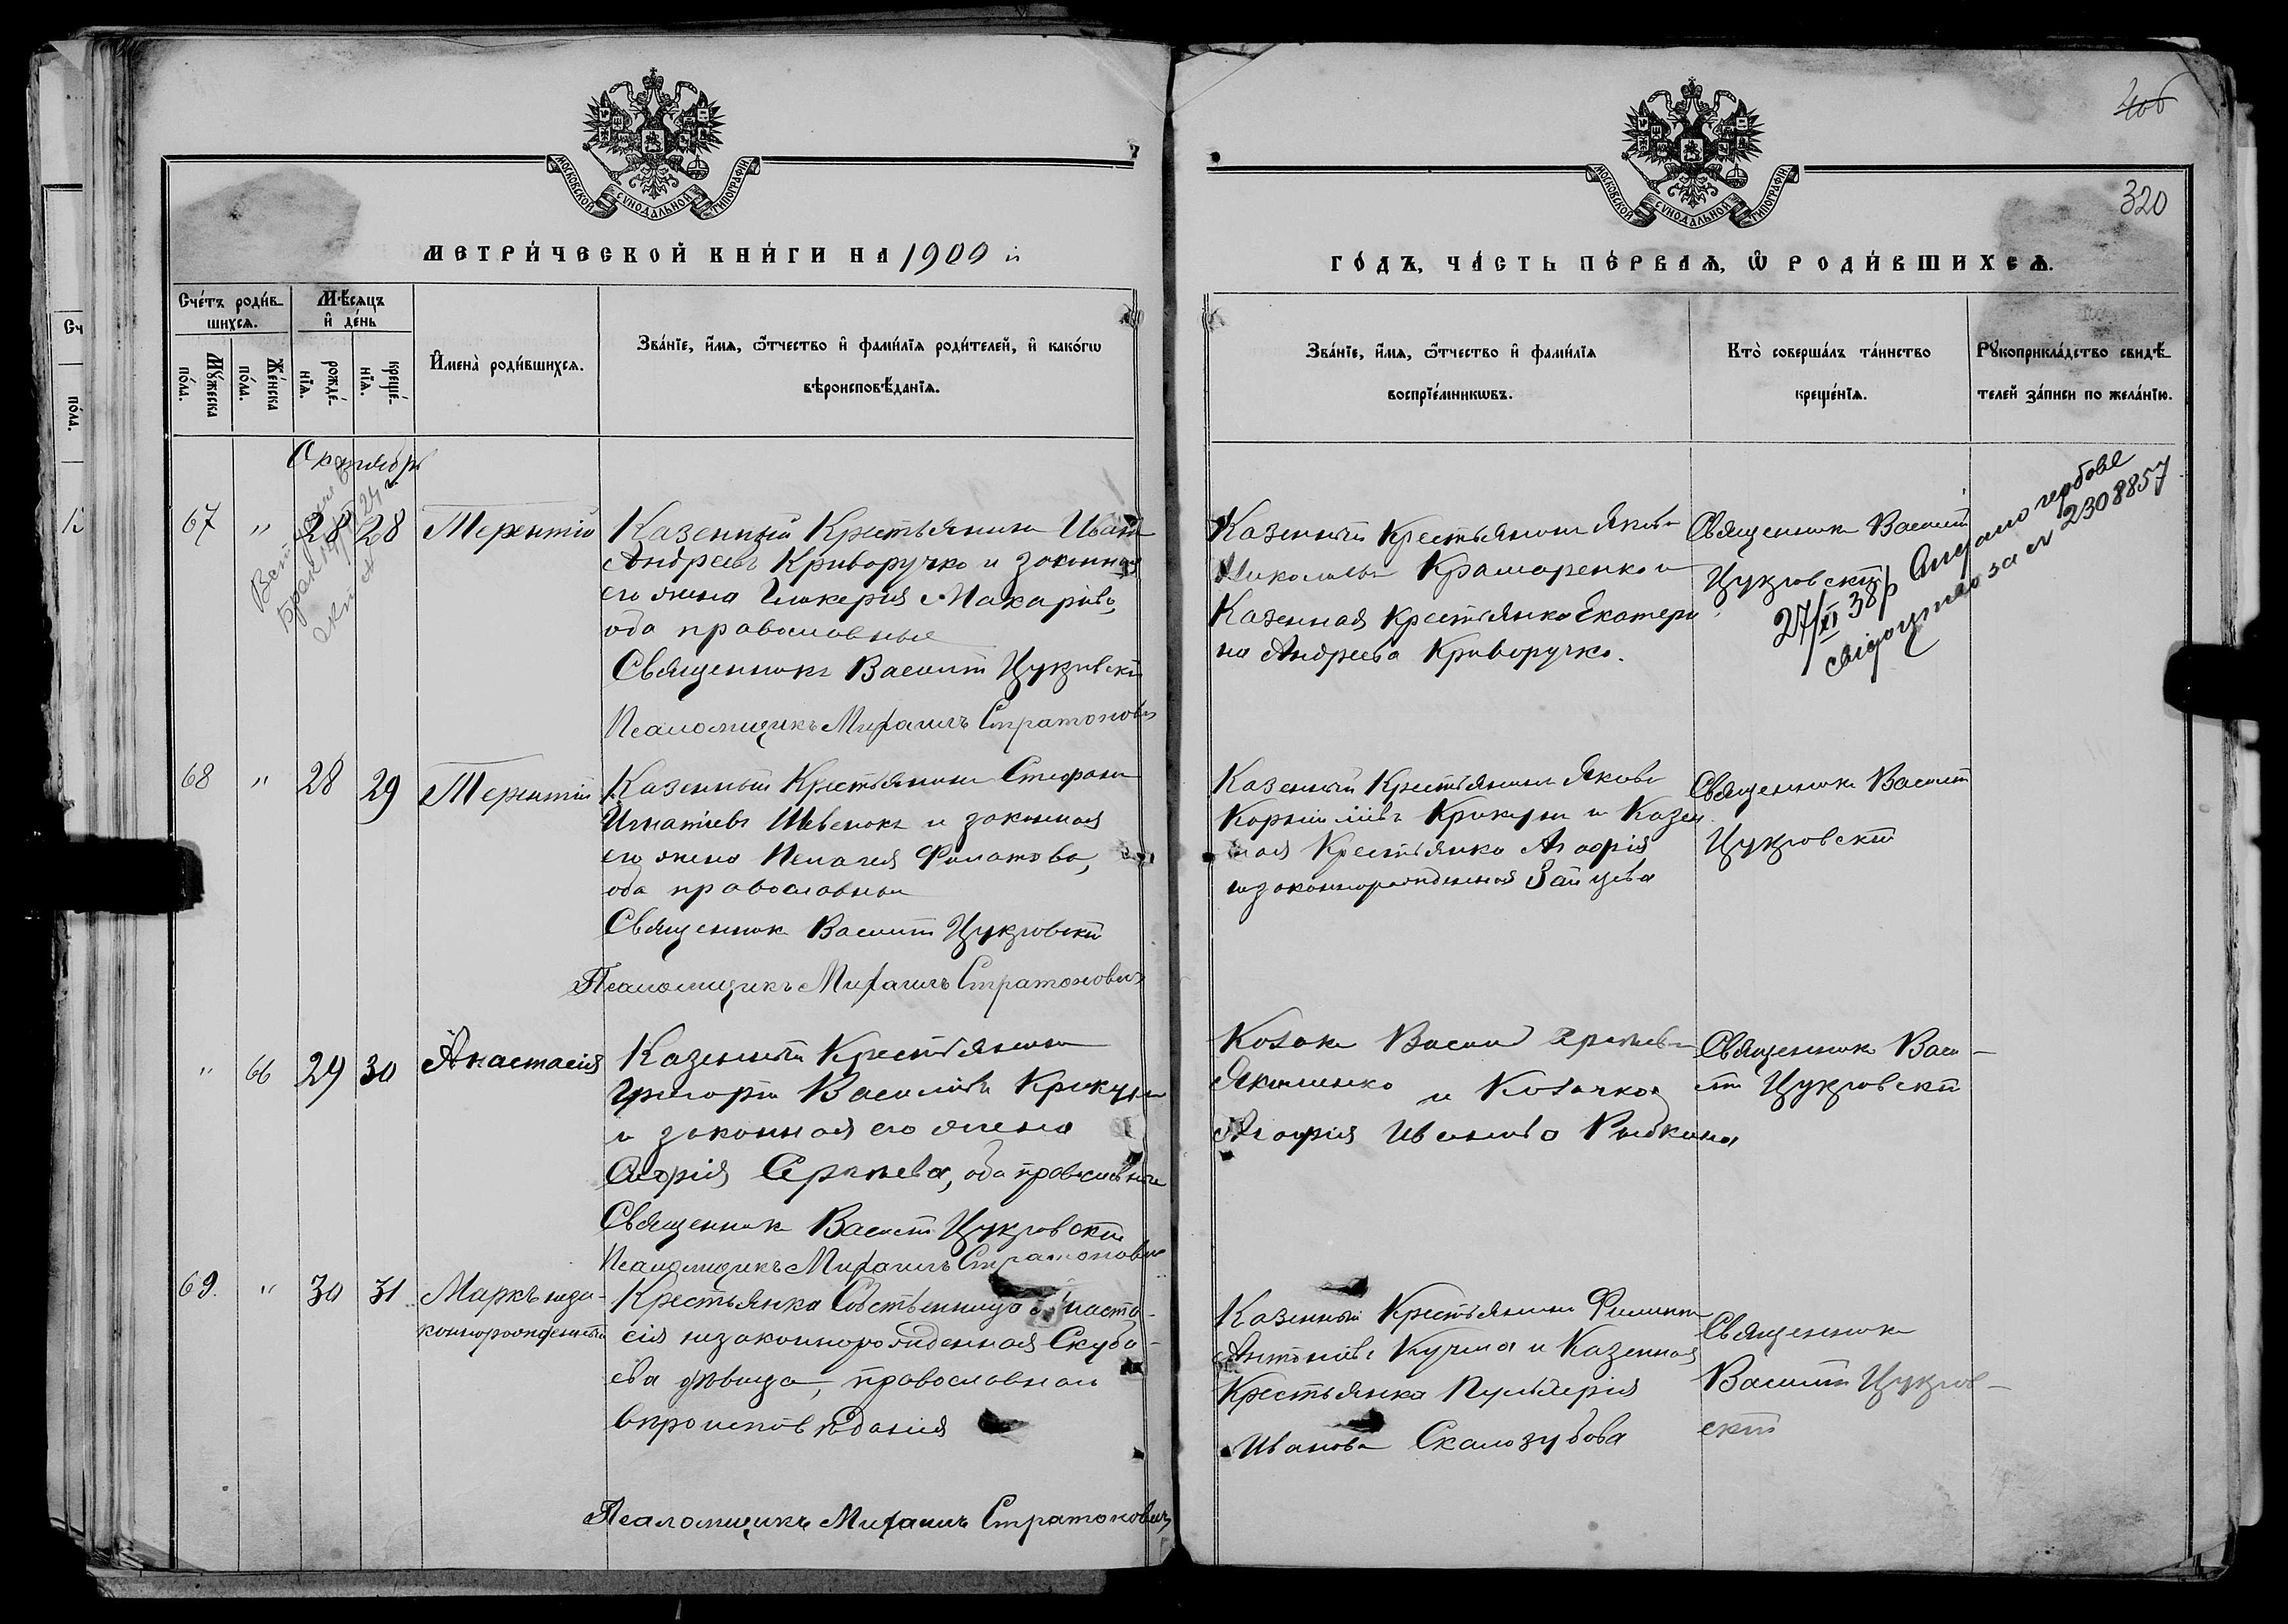 406
320
МОСКОВСКОЙ СУНОДАЛЬНОЙ ТИПОГРАФІИ
МОСКОВСКОЙ СУНОДАЛЬНОЙ ТИПОГРАФІИ
МЕТРИ́ЧЕСКОЙ КНИ́ГИ НА 1900 й
ГО́ДЪ, ЧА́СТЬ ПЕ́РВАѦ, Ѽ РОДИ́ВШИХСѦ.
Сче́тъ роди́в-
шихсѧ.
Мѣ́сѧцъ
и҆ де́нь
Мꙋ́жеска
по́ла.
Же́нска
по́ла.
рожде́-
нїѧ.
креще́-
нїѧ.
И҆мена̀ роди́вшихсѧ.
Зва́нїе, и҆́мѧ, ѻ҆́тчество и҆ фами́лїѧ роди́телей, и҆ како́гѡ
вѣроисповѣ́данїѧ.
Зва́нїе, и҆́мѧ, ѻ҆́тчество и҆ фами́лїѧ
воспрїе́мникѡвъ.
Кто̀ соверша́лъ та́инство
креще́нїѧ.
Рꙋкоприкла́дство свидѣ́-
телей за́писи по жела́нїю.
Октябрь
67 " 28 28 Терентій
Казенный Крестьянинъ Иванъ
Андреевъ Криворучко и законная
его жена Гликерія Макаріева,
оба православные
Священникъ Василій Цукровскій
Псаломщикъ Михаилъ Стратоновичъ
Казенный Крестьянинъ Яковъ
Николаевъ Крамаренко и
Казенная Крестьянка Екатери
на Андреева Криворучко.
Священникъ Василій
Цукровскій
27/XI 38р Видано гербове
свідоцтво за № 2308857
68 " 28 29 Терентій
Казенный Крестьянинъ Стефанъ
Игнатіевъ Швенокъ и законная
его жена Пелагея Филатова,
оба православные
Священникъ Василій Цукровскій
Псаломщикъ Михаилъ Стратоновичъ
Казенный Крестьянинъ Яковъ
Корниліевъ Крикунъ и Казен
ная Крестьянка Агафія
незаконнорожденная Зайцева
Священникъ Василій
Цукровскій
" 66 29 30 Анастасія
Казенный Крестьянинъ
Григорій Василіевъ Крикунъ
и законная его жена
Софія Сергіева, оба православные
Священникъ Василій Цукровскій
Псаломщикъ Михаилъ Стратоновичъ
Козакъ Василій
Якименко и Козачка
Агафія Иванова
Священникъ Васи-
лій Цукровскій
69. " 30 31 Маркъ неза-
коннорожденный
Крестьянка Собственница Анаста-
сія незаконнорожденная Скуба-
ева дѣвица, православнаго
вѣроисповѣданія
Псаломщикъ Михаилъ Стратоновичъ
Казенный Крестьянинъ Филиппъ
Антоніевъ Кучма и Казенная
Крестьянка Пульхерія
Иванова Скалозубова
Священникъ
Василій Цукров-
скій